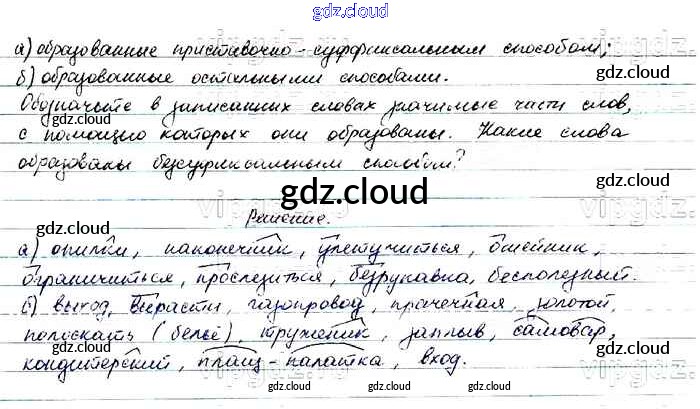 gdz.cloud
а) образованные приставочно-суффиксальным способом;
б) образованные остальными способами.
gdz.cloud
Обозначьте в записанных словах значимые части слов,
с помощью которых они образованы. Какие слова
образованы безсуффиксальным способом?
gdz.cloud
gdz.cloud
Решение.
а) опилки, наконечник, улетучиться, ошейник,
ограничиться, прослезиться, безрукавка, бесполезный.
б) выход, вырасти, газопровод, прачечная, золотой,
полоскать (бельё), труженик, заплыв, самовар,
gdz.cloud
кондитерский, плащ-палатка, вход.
gdz.cloud gdz.cloud gdz.cloud